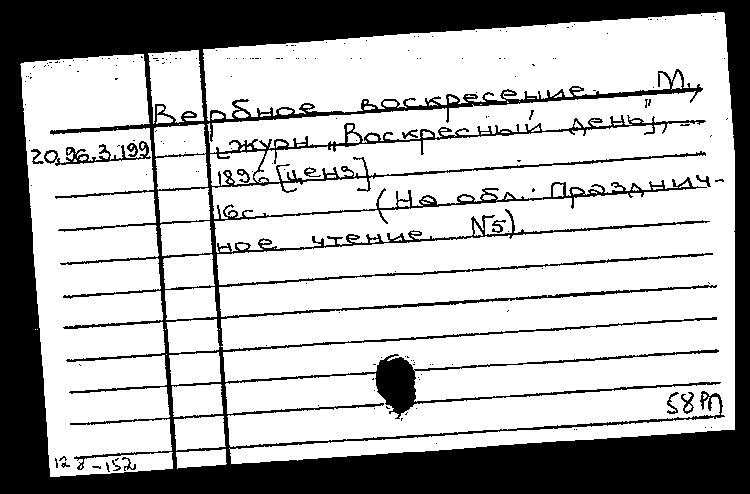 Вербное воскресение. М.,
20.96.3.199 [журн. „Воскресный день",
1896 [ценз.].
16с. (На обл.: Празднич-
ное чтение. N5).
58РП
128-152